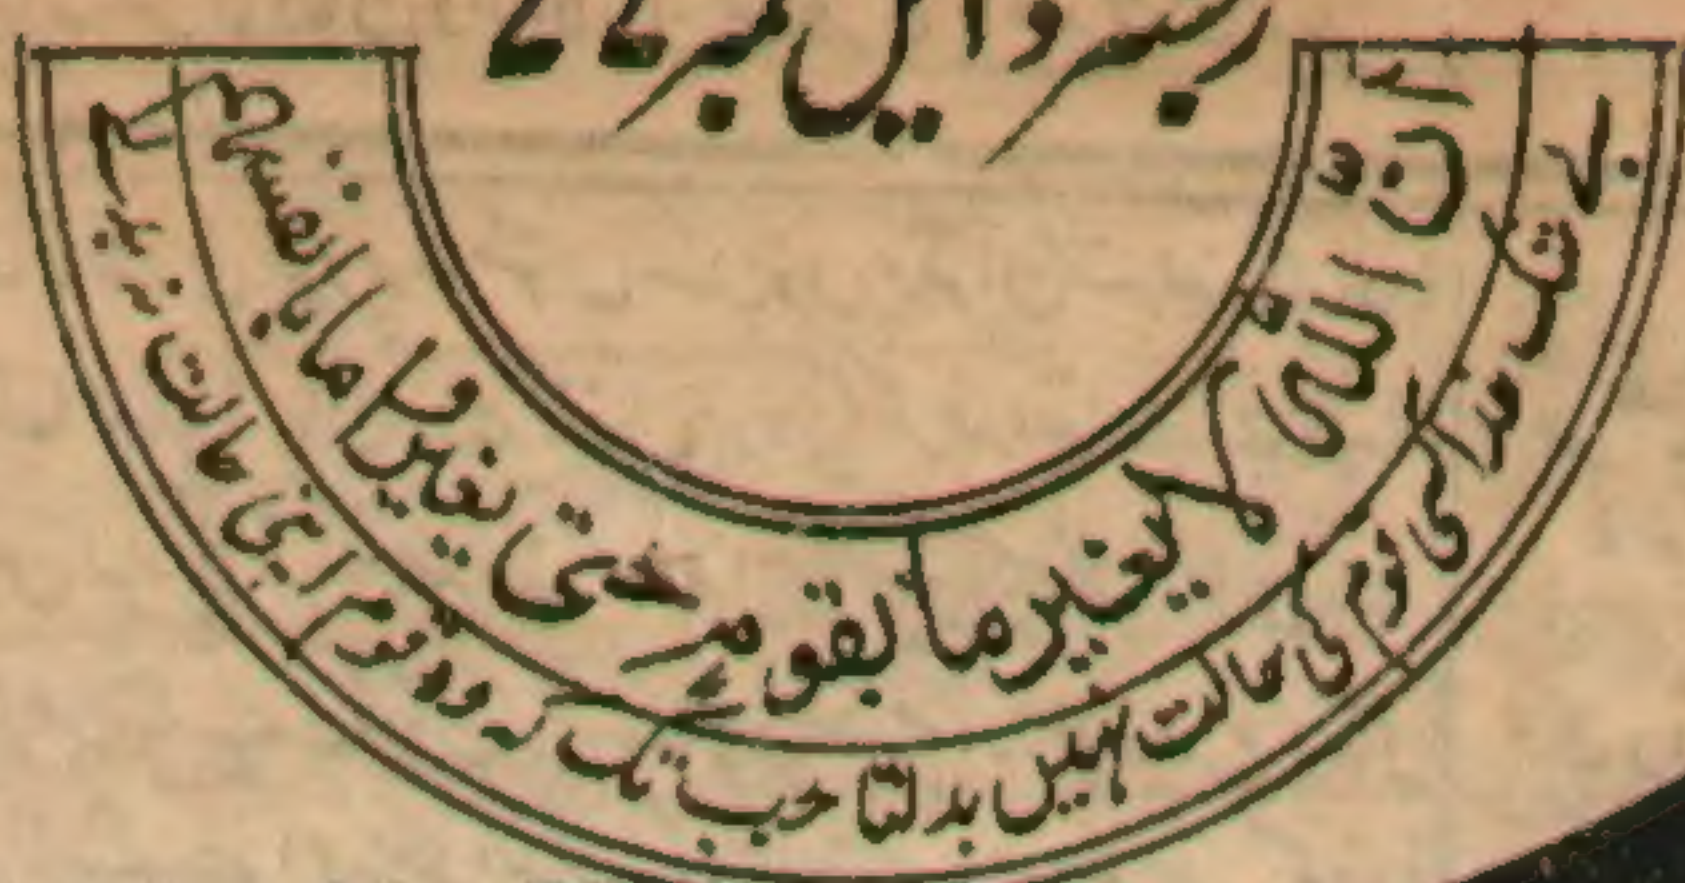 رجسٹرڈ ایل نمبر ۷۷
ان اللہ لا یغیر ما بقوم حتی یغیروا ما بانفسہم
بے شک خدا کسی قوم کی حالت نہیں بدلتا جب تک کہ وہ قوم اپنی حالت نہ بدلے